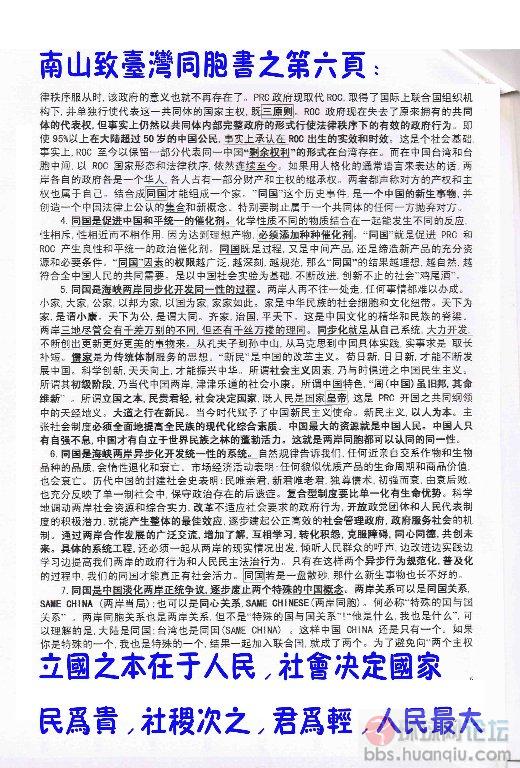 南山致臺灣同胞書之第六頁:
律秩序服从时，该政府的意义也就不再存在了。PRC政府现取代ROC，取得了国际上联合国组织机
构下，并单独行使代表这一共同体的国家主权，既三原则。ROC政府现在失去了原来拥有的共同
体的代表权，但事实上仍然以共同体内部完整政府的形式行使法律秩序下的有效的政府行为。即
使95%以上在大陆超过50岁的中国公民，事实上承认在ROC出生的实效和时效。这是个社会基础，
事实上，ROC至今以保留一部分代表同一中国“剩余权利”的形式在台湾存在。而在中国台湾和台
胞中间，以ROC国家形态和法律秩序，依然连续至今。如果用人格化的通常语言来表达的话，两
岸各自的政府各是一个华人、各人占有一部分财产和主权的继承权。两者都声称对方的产权和主
权也属于自己。结合成同国才能组成一个家。“同国”这个历史事件，是一个中国的新生事物，并
创造一个中国法律上公认的集会和新概念。特别要制止属于一个共同体的任何一方抛弃对方。
4. 同国是促进中国和平统一的催化剂。化学性质不同的物质结合在一起能发生不同的反应，
性相斥，性相近而不相作用，因为达到理想产物，必须添加种种催化剂。“同国”就是促进PRC和
ROC产生良性和平统一的政治催化剂。同国既是过程，又是中间产品，还是缔造新产品的充分资
源和必要条件。“同国”因素的权限越广泛，越深刻，越规范，那么“同国”的结果越理想，越自然，越
符合全中国人民的共同需要。是以中国社会实验为基础，不断改进，创新不止的社会“鸡尾酒”。
5. 同国是海峡两岸同步化开发同一性的过程。两岸人再不往一处走，任何事情都难以办成。
小家，大家，公家，以邦为家，以国为家，家家如此。家是中华民族的社会细胞和文化纽带。天下为
家，是谓小康。天下为公，是谓大同。齐家，治国，平天下。这是中国文化的精华和民族的脊梁。
两岸三地尽管会有千差万别的不同，但还有千丝万褛的理同。同步化就是从自己系统，大力开发，
不断创出更新更好更美的事物来。从孔夫子到孙中山，从马克思到中国具体实践，实事求是，取长
补短。儒家是为传统体制服务的思想。“新民”是中国的改革主义。荀日新，日日新，才能不断发
展中国。科学创新，天天向上，才能振兴中华。所谓社会主义因素，乃与时俱进之中国民生主义。
所谓其初级阶段，乃当代中国两岸，津津乐道的社会小康。所谓中国特色，“周(中国)虽旧邦，其命
维新”。所谓立国之本，民贵君轻，社会决定国家，既人民是国家皇帝，这是PRC开国之共同纲领
中的天经地义。大道之行在新民。当今时代赋予了中国新民主义使命。新民主义，以人为本。主
张社会制度必须全面地提高全民族的现代化综合素质。中国最大的资源就是中国人民。中国人只
有自强不息，中国才有自立于世界民族之林的蓬勃活力。这就是两岸同胞都可以认同的同一性。
6. 同国是海峡两岸异步化开发统一性的系统。自然规律告诉我们，任何近亲交系作物和生物
品种的品质，会惰性退化和衰亡。市场经济活动表明：任何貌似优质产品的生命周期和商品价值，
也会衰亡。历代中国的封建社会史表明：民唯亲君，新君唯老君，独尊儒术，初强而衰，由衰后败，
也充分反映了单一制社会中，保守政治存在的后遗症。复合型制度要比单一化有生命优势。科学
地调动两岸社会资源和综合实力，改革不适应社会要求的政府行为，开放政党团体和人民代表制
度的积极潜力，就能产生整体的最佳效应，逐步建起公正高效的社会管理政府，政府服务社会的机
制。通过两岸合作发展的广泛交流，增加了解，互相学习，转化积怨，克服障碍，同心同德，共创未
来。具体的系统工程，还必须一起从两岸的现实情况出发，倾听人民群众的呼声，边改进边实践边
学习边提高我们两岸的政府行为和人民民主法治行为。只有在这样两个异步行为规范化，普及化
的过程中，我们的同国才能真正有社会活力。同国若是一盘散砂，那什么新生事物也长不好的。
7. 同国是中国淡化两岸正统争议，逐步废止两个特殊的中国概念。两岸关系可以是同国关系，
SAME CHINA（两岸当局）；也可以是同心关系，SAME CHINESE(两岸同胞）。何必称“特殊的国与国
关系”。两岸同胞关系也是两岸关系，但不是“特殊的国与国关系”！“他是什么，我也是什么”，可
以理解的是，大陆是同国；台湾也是同国(SAME CHINA）。这样中国CHINA还是只有一个。如果
你是特殊的一个，我也是特殊的一个，结果一起加入联合国，就成了两个。为了避免向“两个主权
立國之本在于人民，社會決定國家
民爲貴，社稷次之，君爲輕，人民最大
环球网论坛
bbs.huanqiu.com